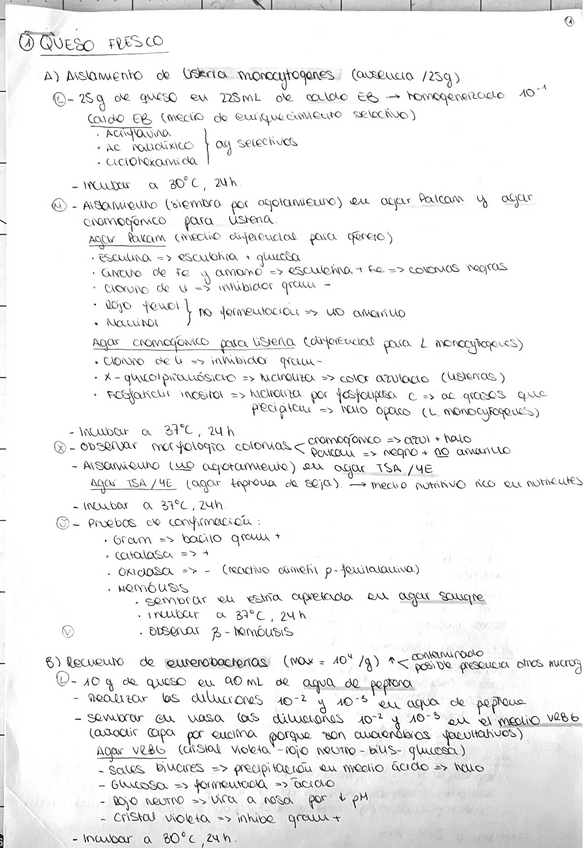 ① QUESO FRESCO
A) Aislamiento de Listeria monocytogenes (ausencia /25g)
Ⓛ - 25g de queso en 225mL de caldo EB → homogeneizado 10⁻¹
Caldo EB (medio de enriquecimiento selectivo)
· Acriflavina
· Ac nalidíxico } ag selectivos
· Ciclohexamida
- Incubar a 30°C, 24h.
Ⓜ - Aislamiento (siembra por agotamiento) en agar Palcam y agar
cromogénico para listeria.
Agar Palcam (medio diferencial para género)
· Esculina => esculetina + glucosa
· Citrato de Fe y amonio => esculetina + Fe => colonias negras
· Cloruro de Li => inhibidor gram -
· Rojo fenol } no fermentación => no amarillo
· Manitol
Agar cromogénico para listeria (diferencial para L monocytogenes)
· Cloruro de Li => inhibidor gram-
· X-glucopiranósido => hidroliza => color azulado (listerias)
· Fosfatidil inositol => hidroliza por fosfolipasa C => ac grasos que
precipitan => halo opaco (L. monocytogenes)
- Incubar a 37°C, 24h
Ⓧ - Observar morfología colonias < cromogénico => azul + halo
Palcam => negro + no amarillo
- Aislamiento (no agotamiento) en agar TSA/YE
Agar TSA/YE (agar triptona de soja) → medio nutritivo rico en nutrientes
- Incubar a 37°C, 24h
Ⓙ - Pruebas de confirmación:
· Gram => bacilo gram +
· Catalasa => +
· Oxidasa => - (reactivo dimetil p-fenilalanina)
· Hemólisis
· Sembrar en estría apretada en agar sangre
· Incubar a 37°C, 24h.
Ⓥ · Observar β-hemólisis
B) Recuento de enterobacterias (max = 10⁴ /g) ↑ < contaminado
posible presencia otros microorg
Ⓛ - 10 g de queso en 90 mL de agua de peptona
- Realizar las diluciones 10⁻² y 10⁻³ en agua de peptona
- Sembrar en masa las diluciones 10⁻² y 10⁻³ en el medio VRBG
(añadir capa por encima porque son anaerobios facultativos)
Agar VRBG (cristal violeta - rojo neutro - bilis - glucosa)
- Sales biliares => precipitación en medio ácido => halo
- Glucosa => fermentada => ácido
- Rojo neutro => vira a rosa por ↓ pH
- Cristal violeta => inhibe gram +
- Incubar a 30°C, 24h.